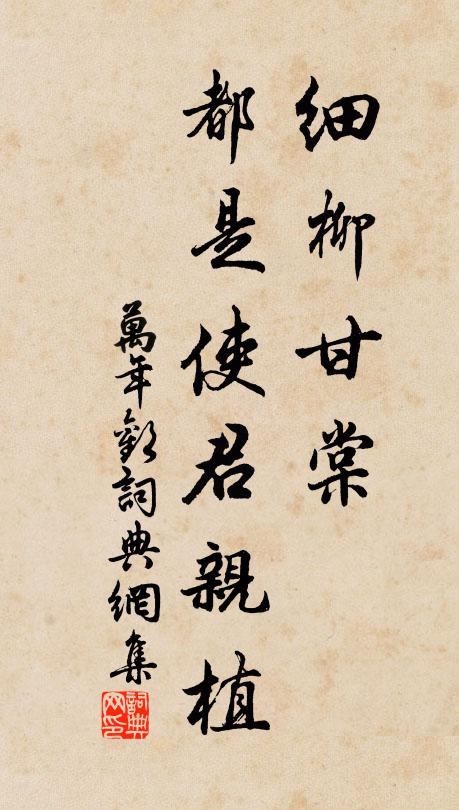 細柳甘棠
都是使君親植
萬年歡詞典網集
詞典網印